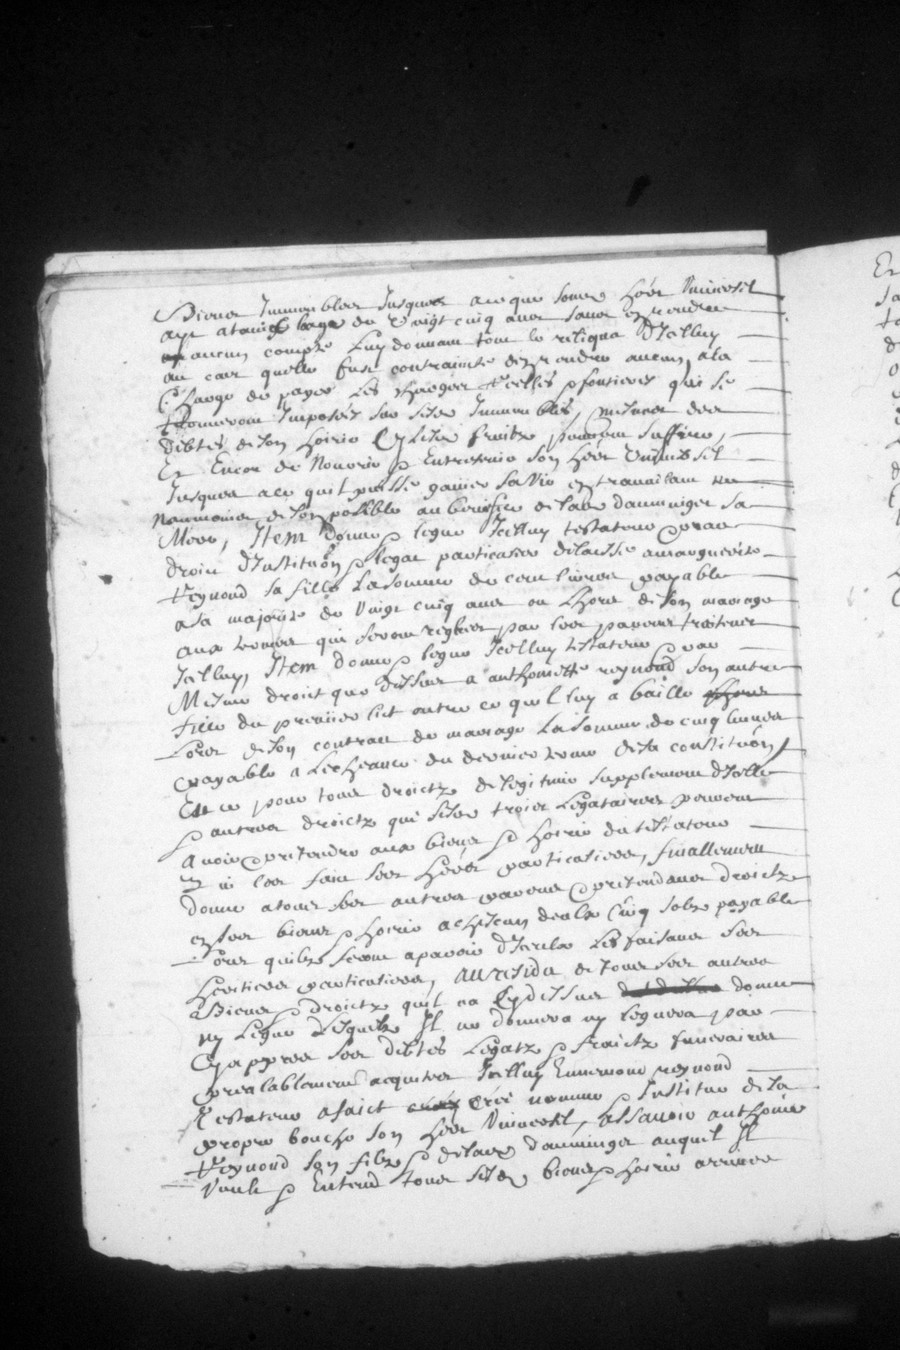 Biens Immeubles Jusques a ce que son heer Universel
aye ataint laage de Vingt cinq ans sans en rendre
aucun compte Luy donnant tout le reliqua D'Icelluy
au cas quelle fust contrainte d'en rendre aucun, a la
Charge de payer Les charges Reelles & foncieres qui se
trouveront Imposees sur sesdits Immeubles, mesmes des
debtes de son hoirie Cy lesdits fruitz peuvent suffire,
Et Encor de Nourrir & Entretenir son heer Universel
Jusques a ce quil puisse gaigner sa Vie en travaillant
neanmoins de son possible au benefice de lad dauminiger sa
Mere, Item donne & legue Icelluy testateur par
droit d'Institution & legat particulier delaisse a margueritte
Reynoud sa fille La somme de cent livres payable
a sa majorite de Vingt cinq ans ou Lhors de son mariage
aux termes qui seront regles par les parens traitteurs
Icelluy, Item donne & legue Icelluy testateur par
Mesme droit que dessus a anthoinette reynoud son autre
fille du premier lict outre ce quil luy a baille
Lors de son contract de mariage La somme de cinq livres
payable a Lecheance du dernier terme de sa constitution
Et ce pour tous droictz de legitime supplement d'Icelle
& autres droictz que sesdits trois Legataires peuvent
avoir & pretendre aux biens & hoirie du testateur
les fait ses heers particuliers, finallement
donne a tous ses autres parens pretendans droictz
en ses biens & hoirie a chacun deulx Cinq solz payable
Lors quilz seront aparoir d'Iceulx Les faisant ses
heritiers particuliers, au residu de tous ses autres
Biens & droictz quil na Cy dessus donne
ny Legue desquelz Il ne donnera ny leguera par
Cy apres ses debtes Legatz & fraictz funeraires
prealablement acquittes Icelluy Ennemond reynoud
Testateur a faict cree nomme & Institue de sa
propre bouche son heer Universel, assavoir anthoine
Reynoud son filz & de lad dauminger auquel Il
Veult & Entend tous sesd biens & hoirie arriver